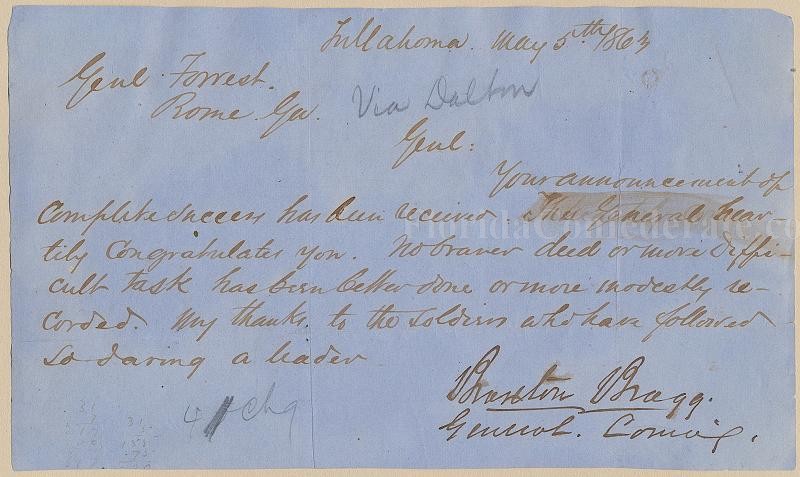 Tullahoma. May 5th 1863
Genl Forrest.
Rome Ga. Via Dalton
Genl:
Your announcement of
complete success has been received. The General hear-
tily congratulates you. No braver deed or more diffi-
cult task has been better done or more modestly re-
corded. My thanks to the soldiers who have followed
so daring a leader
Braxton Bragg.
General. Coming.
4 chg
FloridaConfederate.co